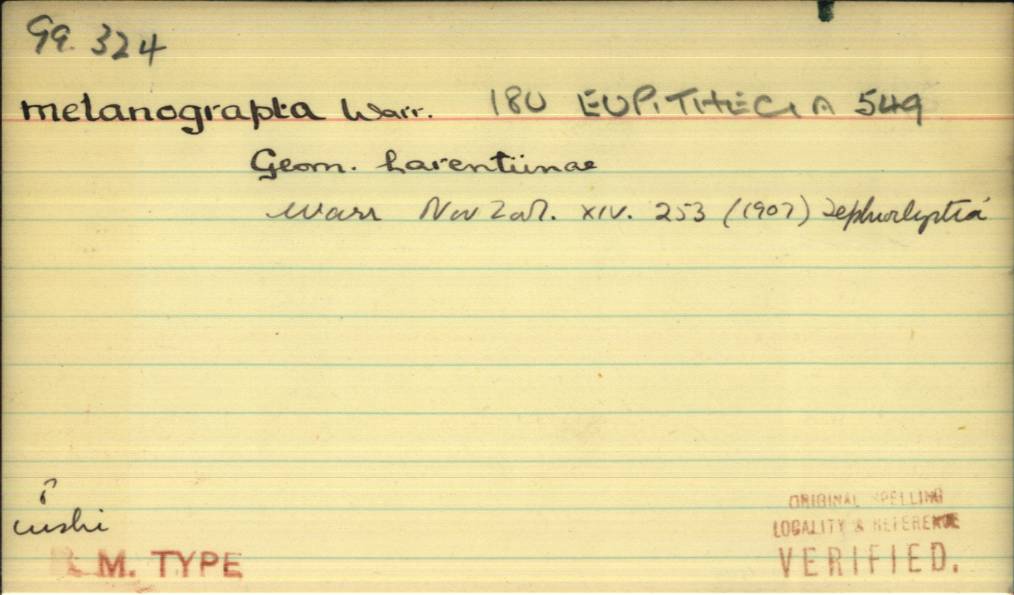 Gg. 324
melanograpta Warr. 180 EUPITHECIA 549
Geom. Larentiinae
Warr Nov Zool. XIV. 253 (1907) Tephroclystia
?
cushi
B. M. TYPE
ORIGINAL SPELLING
LOCALITY & REFERENCE
VERIFIED.